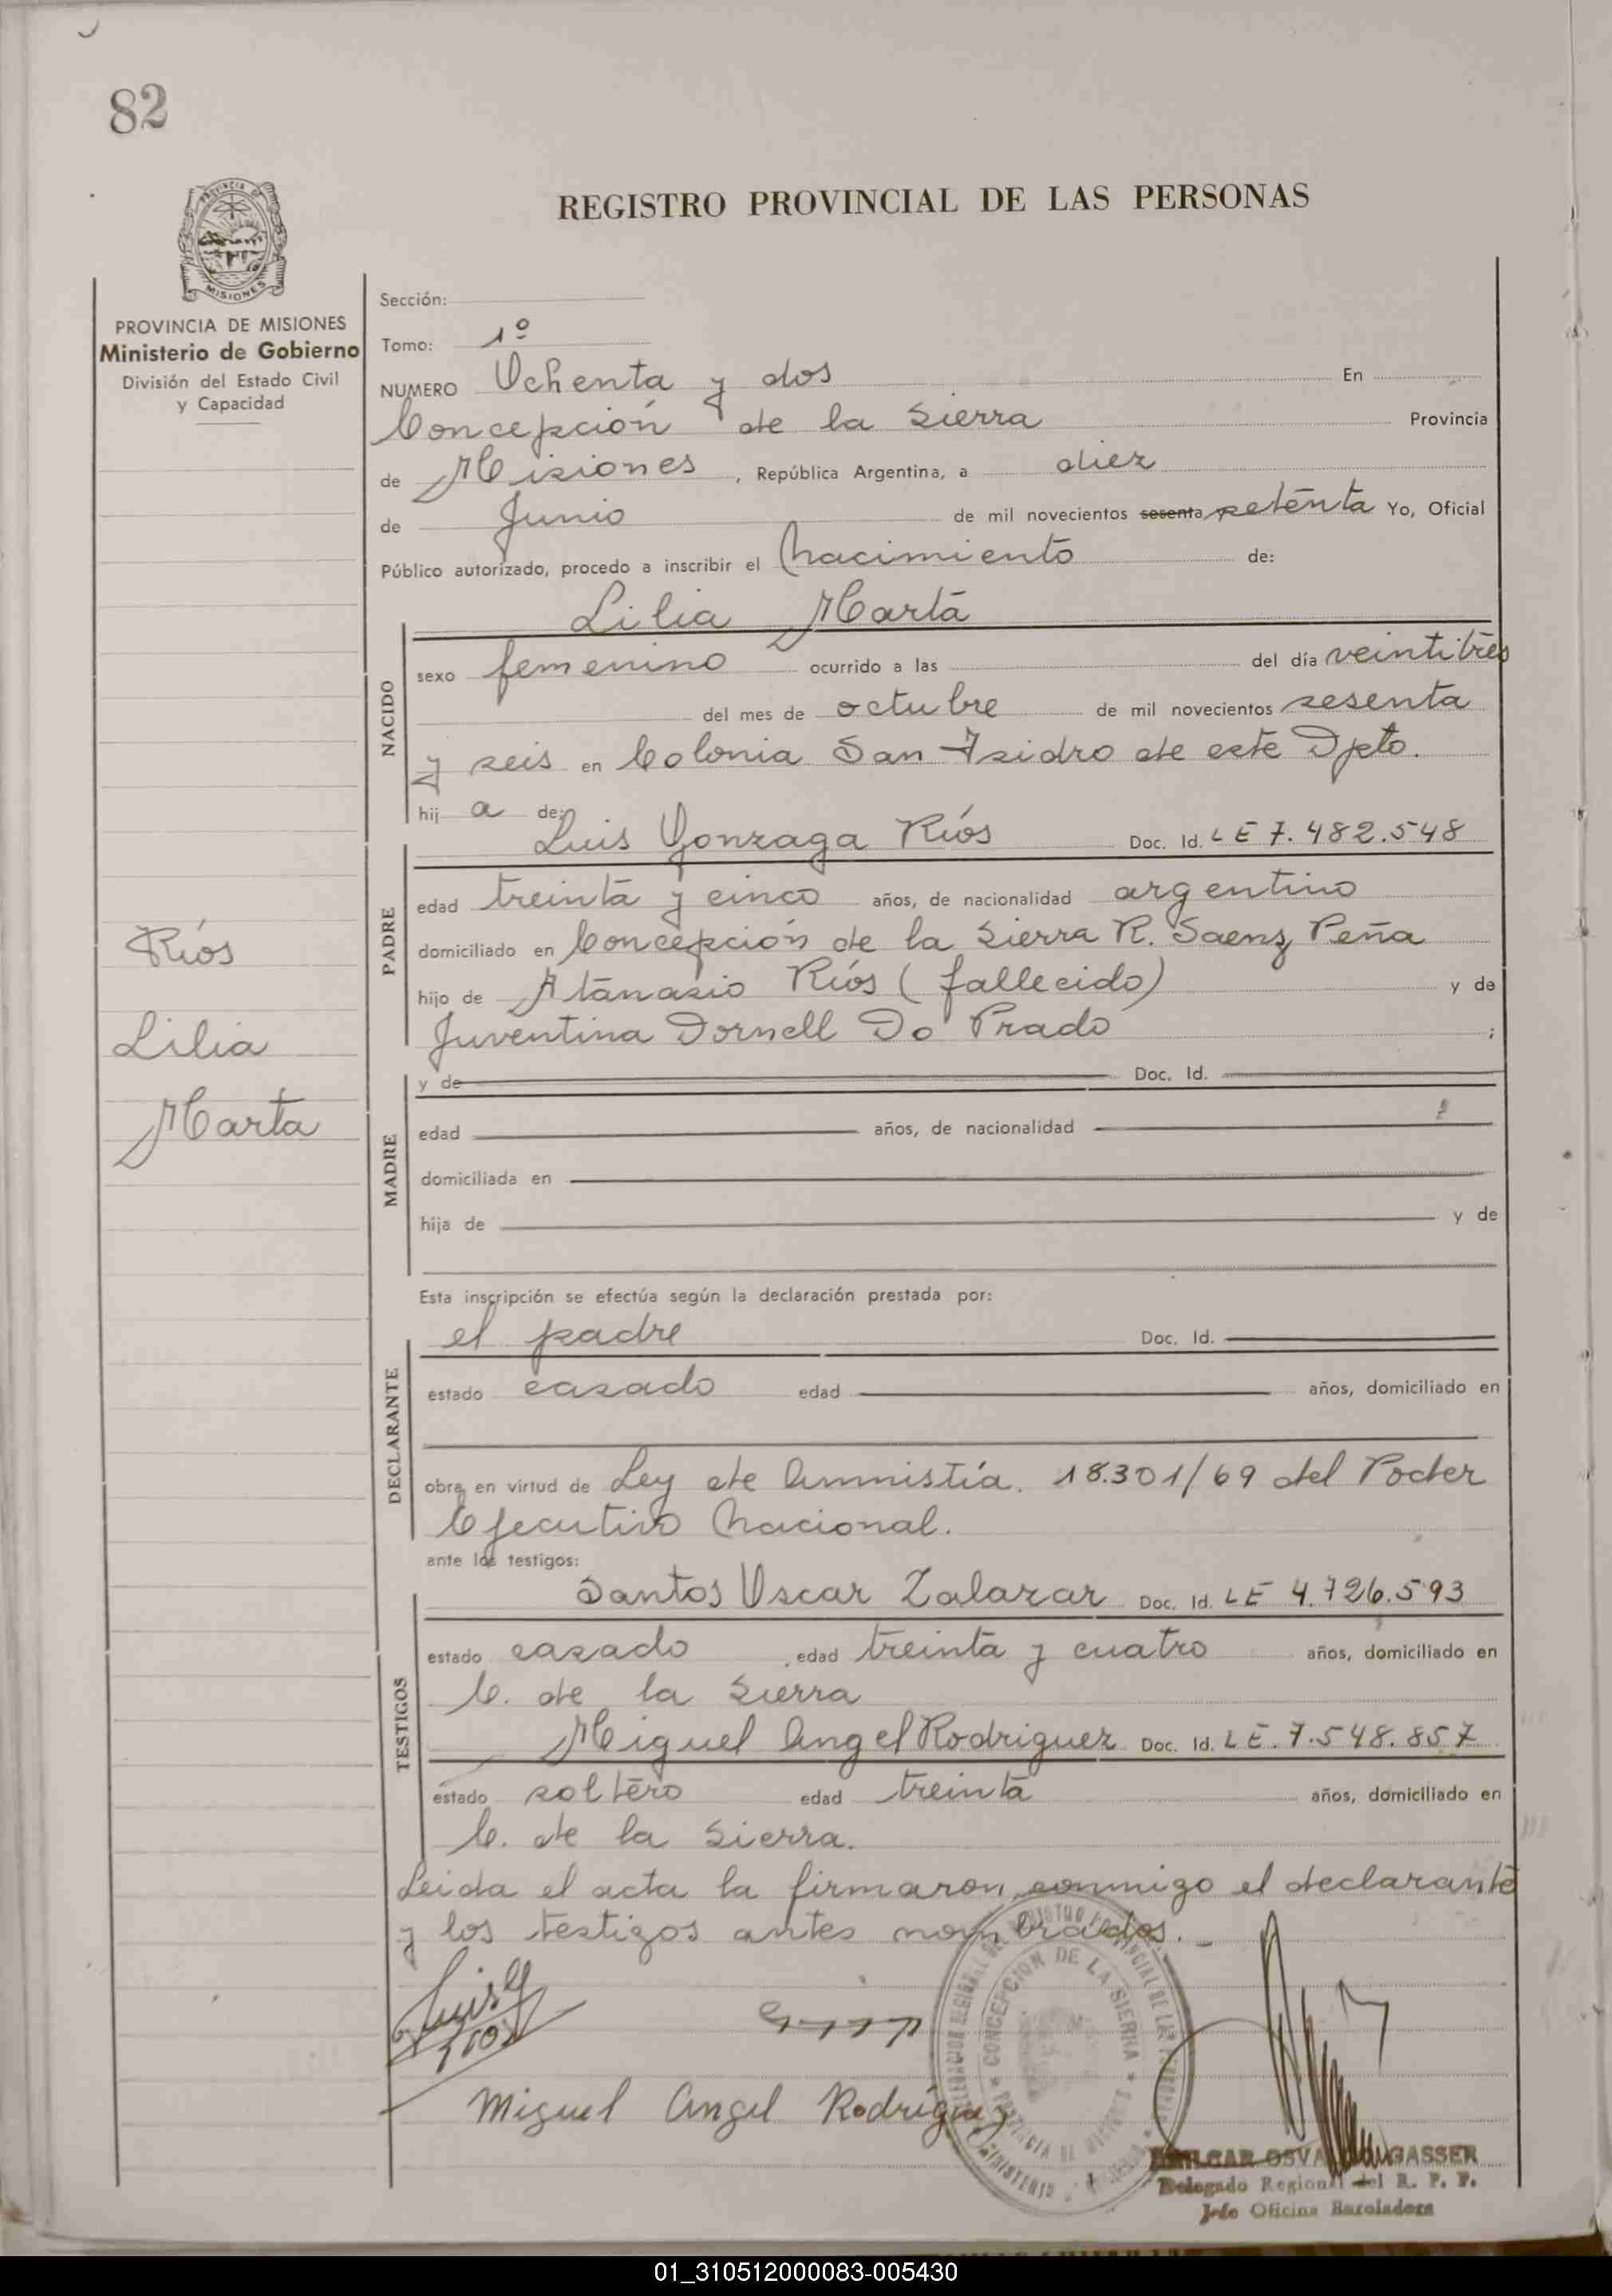 82
PROVINCIA DE
MISIONES
PROVINCIA DE MISIONES
Ministerio de Gobierno
División del Estado Civil
y Capacidad
REGISTRO PROVINCIAL DE LAS PERSONAS
Sección:
Tomo: 1º
NUMERO Ochenta y dos En
Concepción de la Sierra Provincia
de Misiones, República Argentina, a diez
de Junio de mil novecientos sesenta setenta Yo, Oficial
Público autorizado, procedo a inscribir el Nacimiento de:
Lilia Marta
NACIDO
sexo femenino ocurrido a las del día veintitrés
del mes de octubre de mil novecientos sesenta
y seis en Colonia San Isidro de este Dpto.
hij a de:
Luis Gonzaga Ríos Doc. Id. LE 7.482.548
PADRE
edad treinta y cinco años, de nacionalidad argentino
domiciliado en Concepción de la Sierra R. Saenz Peña
hijo de Atanasio Ríos (fallecido) y de
Juventina Dornell Do Prado ;
Ríos
Lilia
Marta
MADRE
y de Doc. Id.
edad años, de nacionalidad
domiciliada en
hija de y de
Esta inscripción se efectúa según la declaración prestada por:
el padre Doc. Id.
DECLARANTE
estado casado edad años, domiciliado en
obra en virtud de Ley de Amnistía. 18.301/69 del Poder
Ejecutivo Nacional.
ante los testigos:
Santos Oscar Zalazar Doc. Id. LE 4.726.593
TESTIGOS
estado casado , edad treinta y cuatro años, domiciliado en
C. de la Sierra
Miguel Angel Rodriguez Doc. Id. LE. 7.548.857
estado soltero edad treinta años, domiciliado en
C. de la Sierra.
Leida el acta la firmaron conmigo el declarante
y los testigos antes nombrados._
Luis G
Rios
CONCEPCION DE LA SIERRA
Miguel Angel Rodriguez
OSVALDO GASSER
Delegado Regional del R. P. P.
Jefe Oficina
01_310512000083-005430